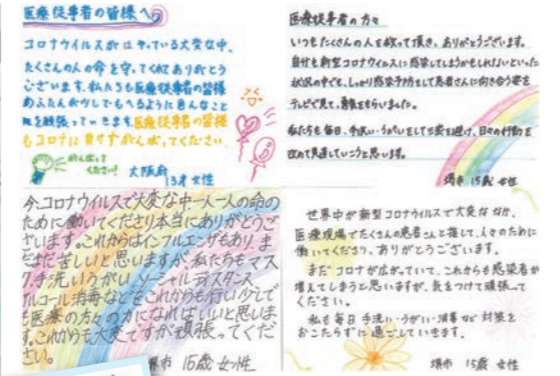 医療従事者の皆様へ
コロナウイルスがはやっている大変な中、
たくさんの人の命を守ってくれてありがとう
ございます。私たちも医療従事者の皆様
のふたんが少しでもへるように色んなこと
を頑張っていきます。医療従事者の皆様
もコロナに負けずがんばってください。
がんばって
ください!
大阪府
13才 女性
医療従事者の方々
いつもたくさんの人を救って頂き、ありがとうございます。
自分も新型コロナウイルスに感染してしまうかもしれないといった
状況の中でも、しっかり感染予防をして患者さんに向き合う姿を
テレビで見て、勇気をもらいました。
私たちも毎日、手洗い・うがいをして三密を避け、日々の行動を
改めて見直していこうと思います。
堺市 15歳 女性
今、コロナウイルスで大変な中一人一人の命の
ために働いてくださり本当にありがとうご
ざいます。これからはインフルエンザもあり、ま
だまだ苦しいと思いますが、私たちもマス
ク、手洗い、うがい、ソーシャルディスタンス、
アルコール消毒などをこれからも行い少しで
も医療の方々の力になればいいと思いま
す。これからも大変ですが頑張ってくだ
さい。
堺市 15歳 女性
世界中が新型コロナウイルスで大変ななか、
医療現場でたくさんの患者さんと接して、人々のために
働いてくださり、ありがとうございます。
まだコロナが広がっていて、これからも感染者が
増えてしまうと思いますが、気をつけて頑張って
ください。
私も毎日手洗い・うがい・消毒など対策を
おこたらずに過ごしていきます。
堺市 15歳 女性